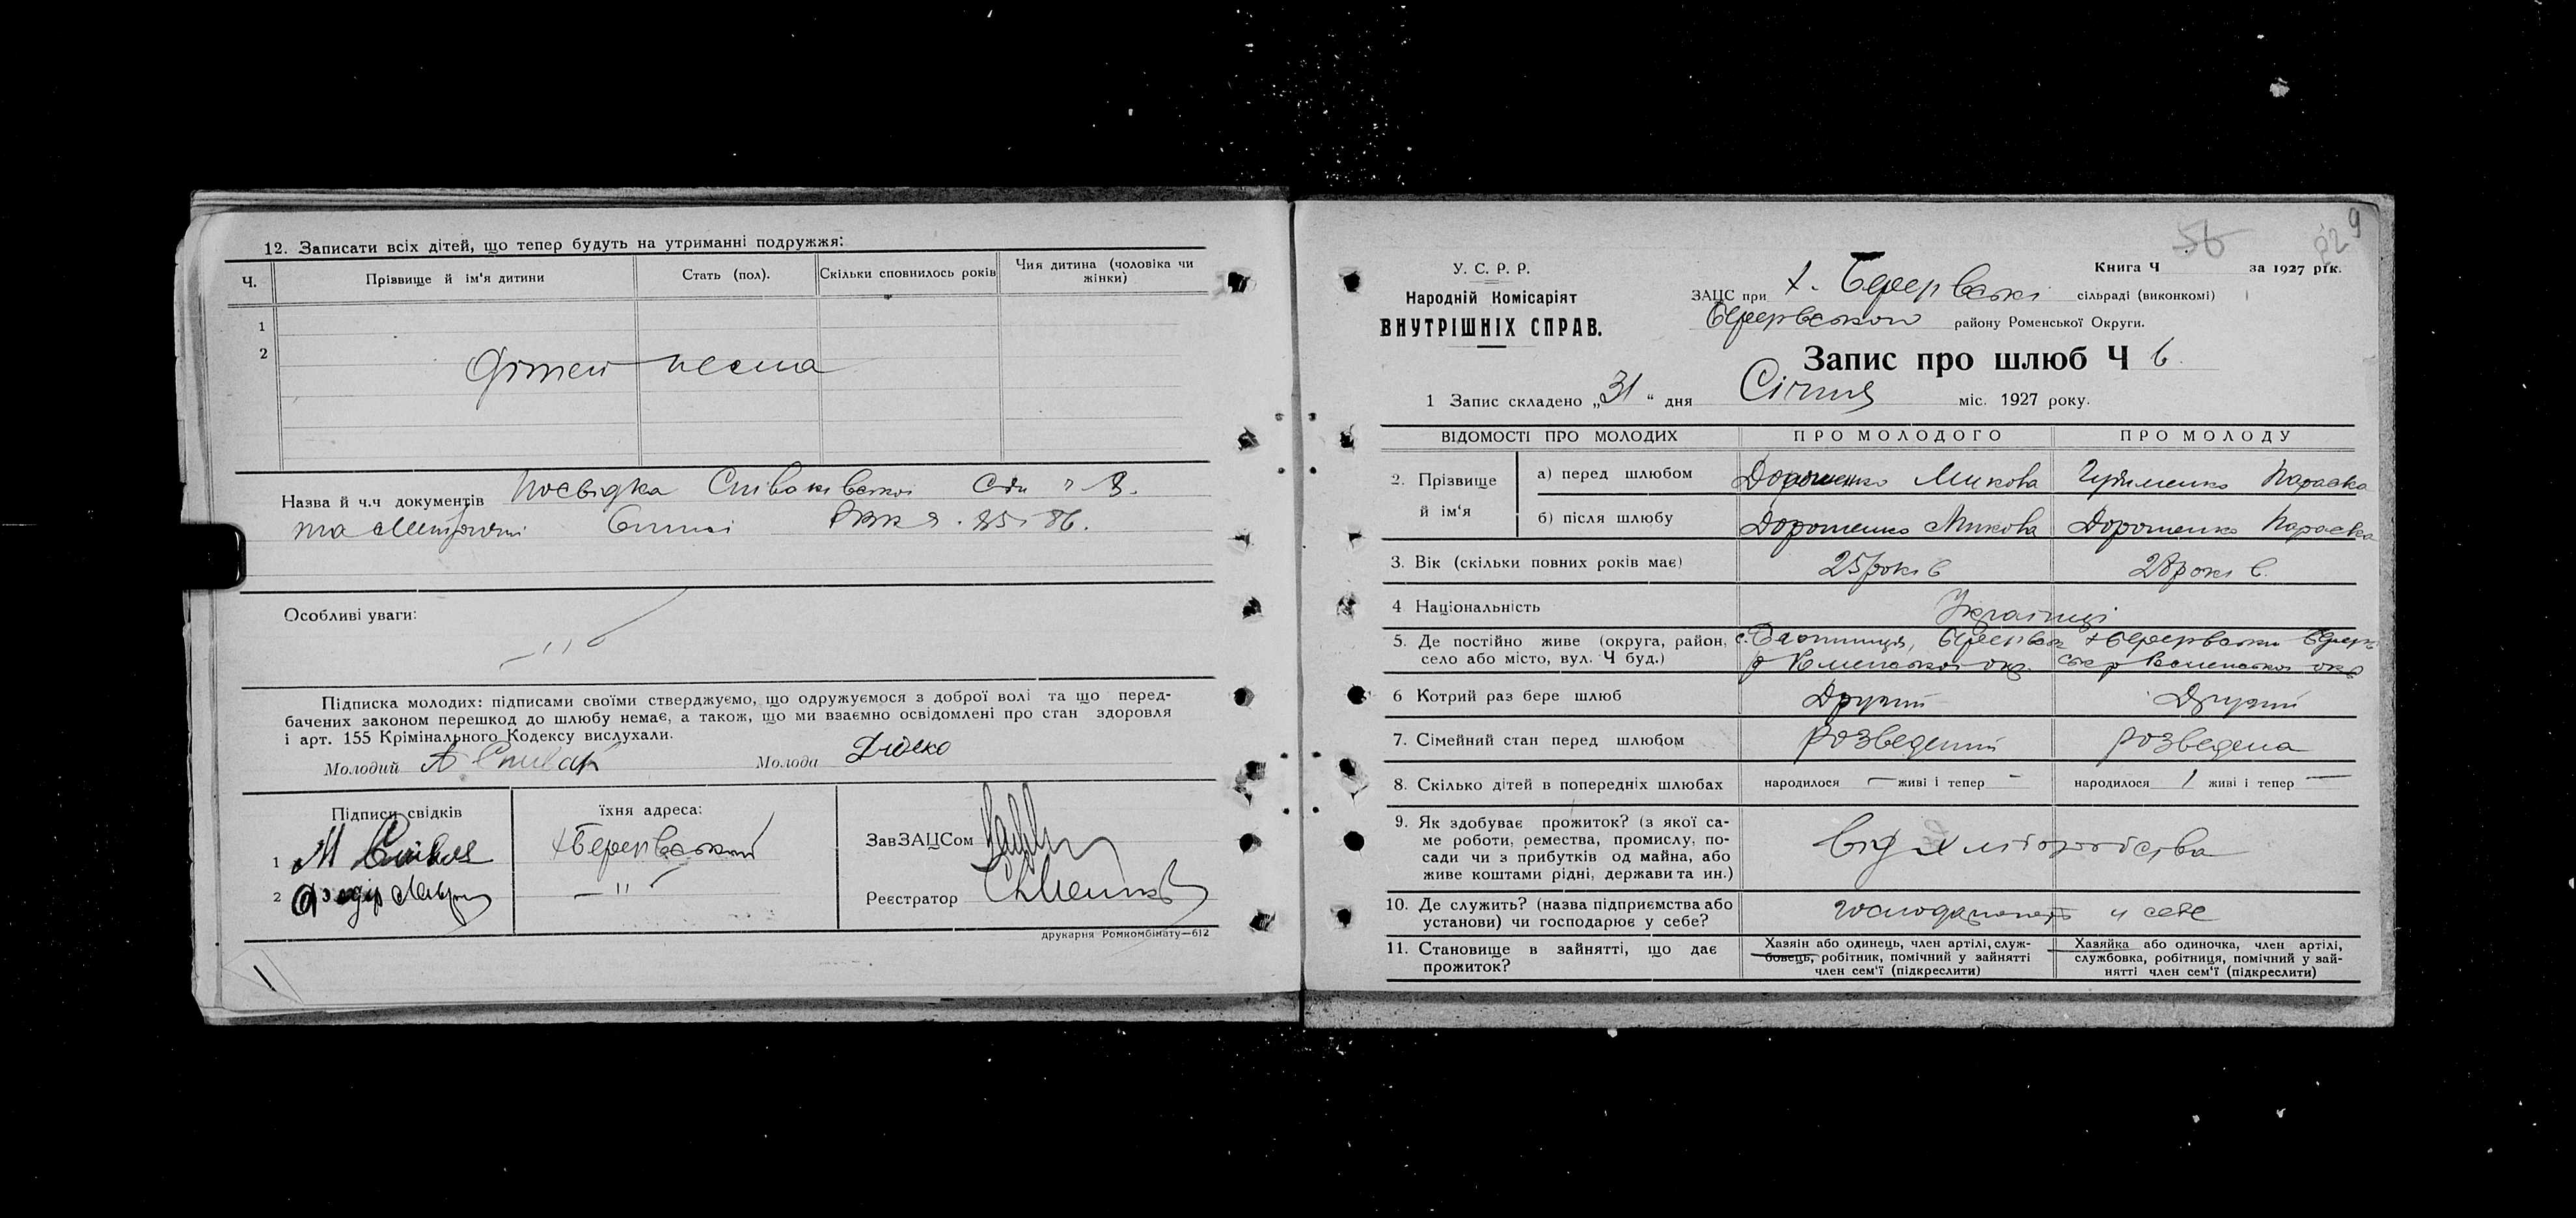 12. Записати всіх дітей, що тепер будуть на утриманні подружжя:
Ч.
Прізвище й ім'я дитини
Стать (пол).
Скільки сповнилось років
Чия дитина (чоловіка чи жінки)
1
2
Дітей нема
Назва й ч.ч документів Посвідка
та
Особливі уваги:
— " —
Підписка молодих: підписами своїми стверджуємо, що одружуємося з доброї волі та що перед-
бачених законом перешкод до шлюбу немає, а також, що ми взаємно освідомлені про стан здоровля
і арт. 155 Крімінального Кодексу вислухали.
Молодий А Співак Молода
Підписи свідків
їхня адреса:
1
2
— " —
ЗавЗАЦСом
Реєстратор
друкарня Ромкомбінату—612
56
9
У. С. Р. Р.
Народній Комісаріят
ВНУТРІШНІХ СПРАВ.
Книга Ч за 1927 рік.
ЗАЦС при х. сільраді (виконкомі)
району Роменської Округи.
Запис про шлюб Ч 6
1 Запис складено „31" дня Січня міс. 1927 року.
ВІДОМОСТІ ПРО МОЛОДИХ
ПРО МОЛОДОГО
ПРО МОЛОДУ
2. Прізвище й ім'я
а) перед шлюбом
Дорошенко Микола
Параска
б) після шлюбу
Дорошенко Микола
Дорошенко Параска
3. Вік (скільки повних років має)
25 років
28 років.
4 Національність
Українці
5. Де постійно живе (округа, район,
село або місто, вул. Ч буд.)
6 Котрий раз бере шлюб
Другий
Другий
7. Сімейний стан перед шлюбом
розведений
розведена
8. Скілько дітей в попередніх шлюбах
народилося — живі і тепер —
народилося 1 живі і тепер —
9. Як здобуває прожиток? (з якої са-
ме роботи, ремества, промислу, по-
сади чи з прибутків од майна, або
живе коштами рідні, держави та ин.)
від хліборобства
10. Де служить? (назва підприємства або
установи) чи господарює у себе?
у себе
11. Становище в зайнятті, що дає
прожиток?
Хазяін або одинець, член артілі, служ-
бовець, робітник, помічний у зайнятті
член сем'ї (підкреслити)
Хазяйка або одиночка, член артілі,
службовка, робітниця, помічний у зай-
нятті член сем'ї (підкреслити)